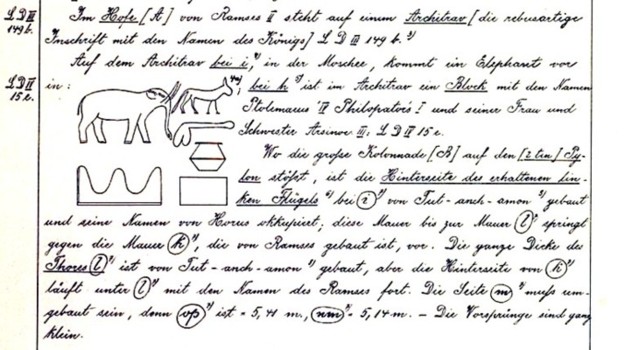 L D III 149 b.
Im Hofe [A] von Ramses II steht auf einem Architrav [die rebusartige
Inschrift mit den Namen des Königs] L D III 149 b. ⁵⁾
Auf dem Architrav bei i, ⁾ in der Moschee, kommt ein Elephant vor
L D IV 15 e.
in:
bei h ⁾ ist im Architrav ein Block mit den Namen
Ptolemaeus' IV Philopators I und seiner Frau und
Schwester Arsinoe III; L D IV 15 e.
Wo die große Kolonnade [B] auf den [2 ten] Py-
lon stößt, ist die Hinterseite des erhaltenen lin-
ken Flügels ⁶⁾ bei i ⁷⁾ von Tut-anch-amon ⁸⁾ gebaut
und seine Namen von Horus okkupiert, diese Mauer bis zur Mauer l ⁷⁾ springt
gegen die Mauer k ⁷⁾, die von Ramses gebaut ist, vor. Die ganze Dicke des
Thores l ⁷⁾ ist von Tut-anch-amon ⁷⁾ gebaut, aber die Hinterseite von k ⁷⁾
läuft unter l ⁷⁾ mit den Namen des Ramses fort. Die Seite m ⁷⁾ muß um-
gebaut sein, denn op ⁷⁾ ist = 5,41 m., nm ⁷⁾ = 5,14 m. – Die Vorsprünge sind ganz
klein.